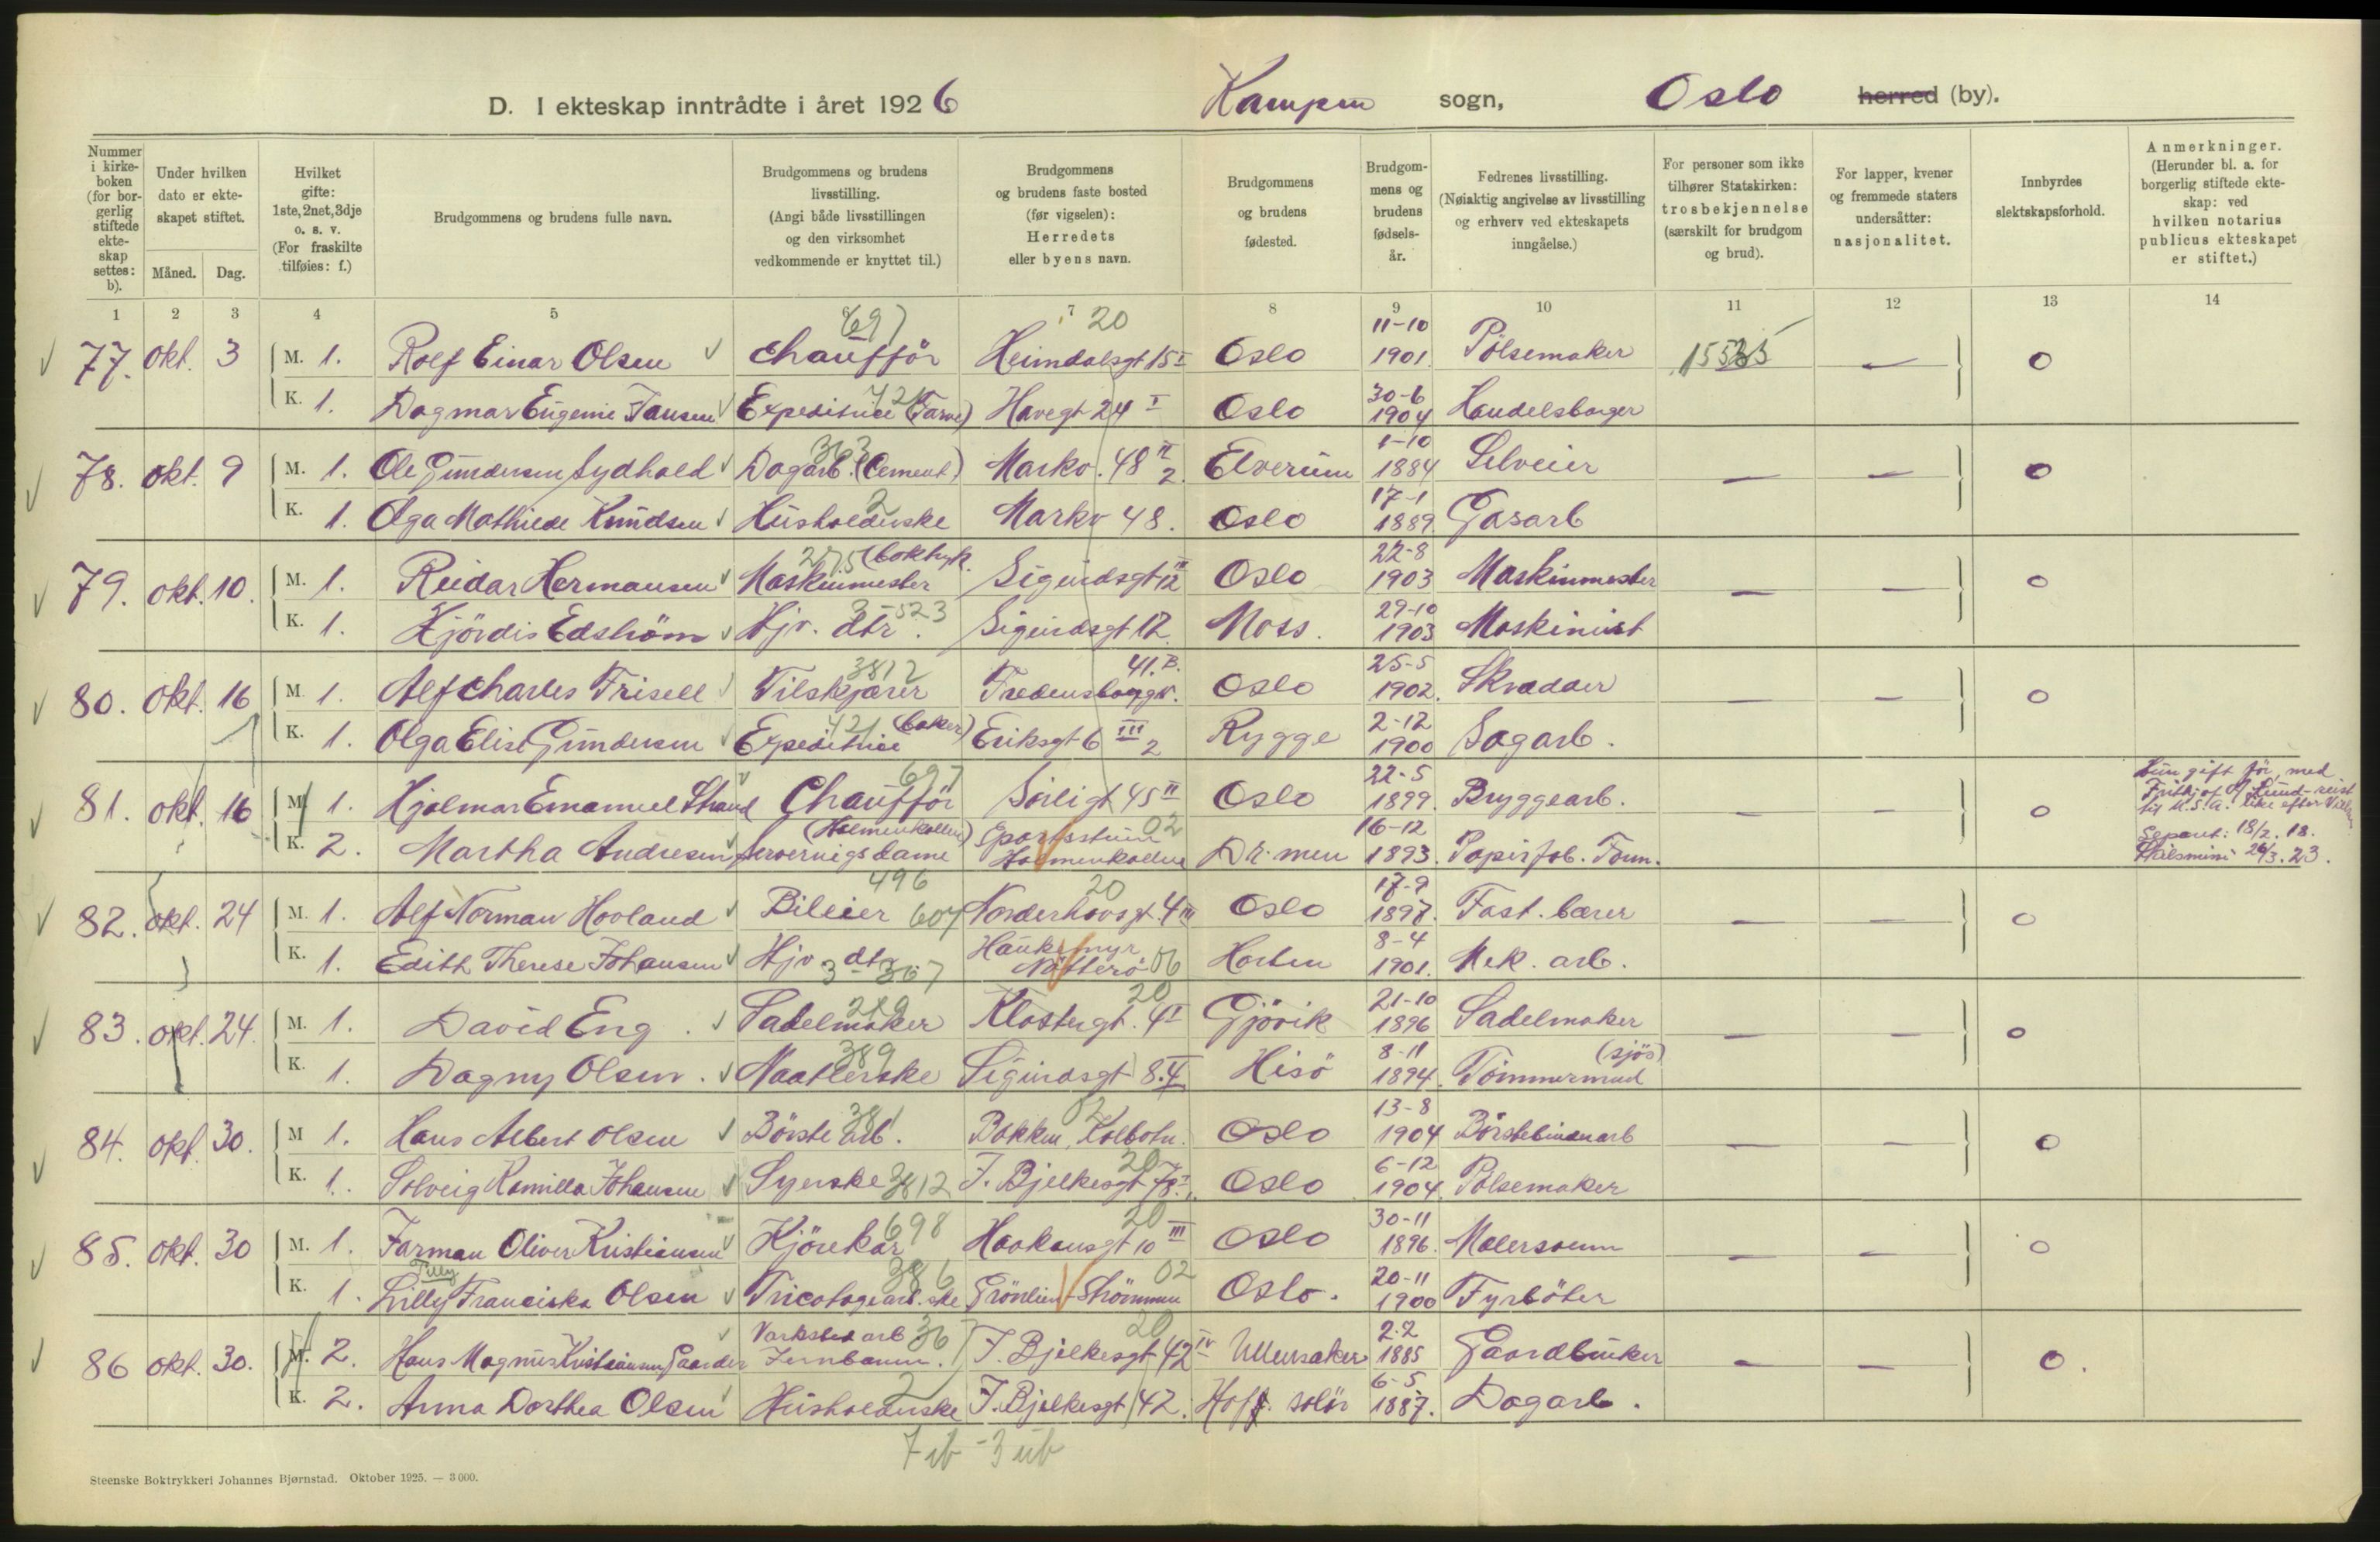 D. I ekteskap inntrådte i året 1926 Kampen sogn, Oslo herred (by).
Nummer i kirke-boken (for bor-gerlig stiftede ekte-skap settes: b).
Under hvilken dato er ekte-skapet stiftet.
Måned. Dag.
Hvilket gifte: 1ste, 2net, 3dje o. s. v. (For fraskilte tilføies: f.)
Brudgommens og brudens fulle navn.
Brudgommens og brudens livsstilling. (Angi både livsstillingen og den virksomhet vedkommende er knyttet til.)
Brudgommens og brudens faste bosted (før vigselen): Herredets eller byens navn.
Brudgommens og brudens fødested.
Brudgom-mens og brudens fødsels-år.
Fedrenes livsstilling. (Nøiaktig angivelse av livsstilling og erhverv ved ekteskapets inngåelse.)
For personer som ikke tilhører Statskirken: trosbekjennelse (særskilt for brudgom og brud).
For lapper, kvener og fremmede staters undersåtter: nasjonalitet.
Innbyrdes slektskapsforhold.
Anmerkninger. (Herunder bl. a. for borgerlig stiftede ekte-skap: ved hvilken notarius publicus ekteskapet er stiftet.)
1 2 3 4 5 6 7 8 9 10 11 12 13 14
697 20 11-10
77. okt. 3 M. 1. Rolf Einar Olsen Chaufför Heimdalsgt 15 I Oslo 1901 Pölsemaker 15535 — 0
421 30-6
K. 1. Dagmar Eugenie Jansen Expeditrice (Farve) Havegt 24 I Oslo 1904 Handelsborger
363 1-10
78. okt. 9 M. 1. Ole Gundersen Sydhold Dagarb. (Cement) Markv. 48 II 2 Elverum 1884 Selveier — — 0
2 17-1
K. 1. Olga Mathilde Knudsen Husholderske Markv 48. Oslo 1889 Gasarb
275 (boktryk. 22-8
79. okt. 10. M. 1. Reidar Hermansen Maskinmester Sigurdsgt 12 III Oslo 1903 Maskinmester — — 0
3-523 29-10
K. 1. Hjördis Edström Hjv. dtr. Sigurdsgt 12 Moss. 1903 Maskinist
3812 41.B. 25-5
80. okt. 16 M. 1. Alf Charles Frisell Tilskjærer Fredensborggv. Oslo 1902. Skrædder — — 0
421 (baker) 2-12
K. 1. Olga Elise Gundersen Expeditrice Eriksgt 6 III 2 Rygge 1900 Sagarb.
697 22-5
81. okt. 16 M. 1. Hjalmar Emanuel Strand Chaufför Sörligt 45 II Oslo 1899. Bryggearb. — — 0
Hun gift för med
Frithjof Lund - reist
til U.S.A. like efter
Separt: 18/2. 18.
26/3. 23.
(Holmenkollen) 02 16-12
K. 2. Martha Andresen Serveringsdame Sportsstuen Holmenkollen Dr.men 1893. Papirfab. Form.
496 20 17-9
82. okt. 24 M. 1. Alf Norman Hovland Bileier 607 Norderhovsgt. 4 III Oslo 1897. Fast. bærer — — 0
8-4
K. 1. Edith Therese Johansen Hjv. dtr 3-367 Haukemyr Nötterö 06 Horten 1901. Mek. arb.
20 21-10
83. okt. 24. M. 1. David Eng. Sadelmaker Klostergt. 4 I Gjövik 1896 Sadelmaker — — 0
389 8-11 (sjös)
K. 1. Dagny Olsen. Naatlerske Sigurdsgt 8. Hisö 1894. Tömmermand
381 02 13-8
84. okt. 30. M 1. Hans Albert Olsen Börstearb. Bakken, Kolbotn. Oslo 1904 Börstebinderarb — — 0
20 6-12
K. 1. Solveig Kamilla Johansen Syerske 3812 J. Bjelkesgt 78 I Oslo 1904 Pölsemaker
698 20 30-11
85. okt. 30 M. 1. Farman Oliver Kristiansen Kjörekar Haakonsgt 10 III Oslo 1896. Malersvenn — — 0
Tilly 386 02 20-11
K. 1. Lilly Franciska Olsen Tricotagearb.ske Grönlien Strömmen Oslo. 1900 Fyrböter
Verksted arb 367 20 2-2
86 okt. 30. M. 2. Hans Magnus Kristiansen Gaarder Jernbanen. J. Bjelkesgt 42 IV Ullensaker 1885 Gaardbruker — — 0.
2 6-5
K. 2. Anna Dorthea Olsen Husholderske J. Bjelkesgt 42. Hoff. Solör 1887. Dagarb.
7 ib - 3 ub
Steenske Boktrykkeri Johannes Bjørnstad. Oktober 1925. — 3000.